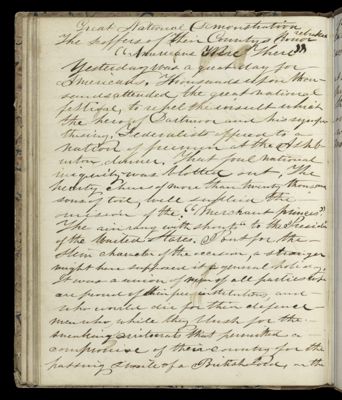 Great National Demonstration
The scoffers of their Country's Honor rebuked
"Americans Were There"
Yesterday was a great day for
Americans. Thousands upon thou-
sands attended the great national
festival, to repel the insult which
the hero of Dartmoor and his sympa-
thising Federalists offered to a
nation of freemen at the Ashb-
urton dinner. That foul national
iniquity was blotted out, the
hearty cheers of more than twenty thousand
sons of toil, will suffice the
mission of the "Merchant princes"
The air rang with shouts to the President
of the United States. But for the
stern character of the occasion, a stranger
might have supposed it a general holiday.
It was a union of men of all parties who
are proud of their institutions, and
who would die for their defence
men who while they blush for the
sneaking aristocrats that permitted a
compromise of their country for the
passing smile of a British Lord, or the